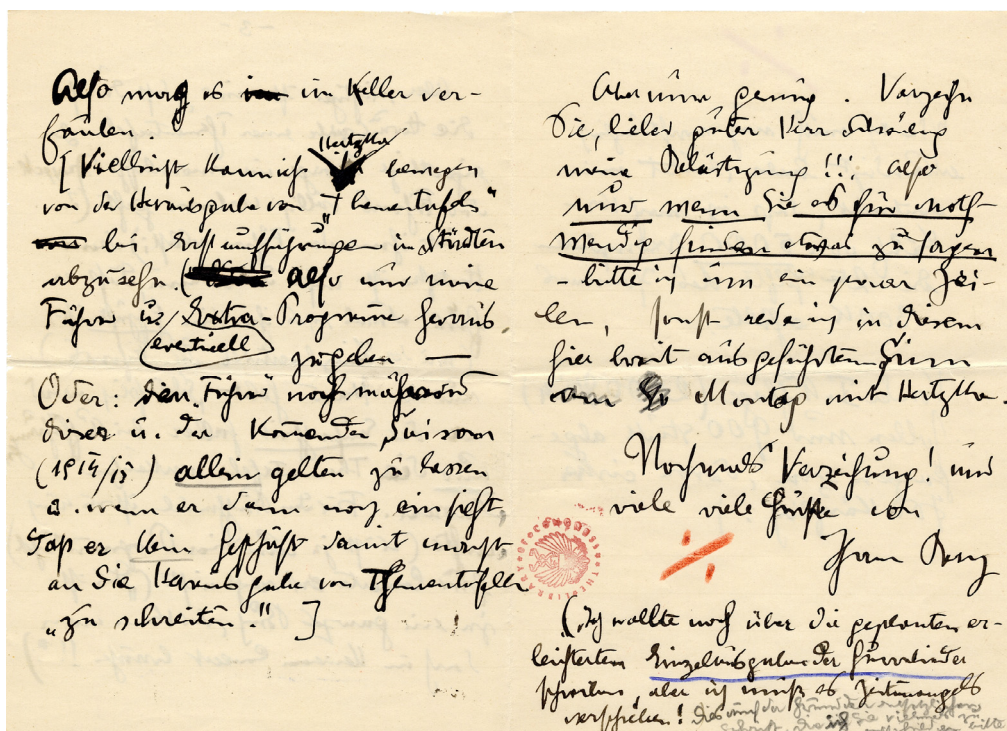 Also mag es im Keller ver-
faulen.
[Vielleicht kann ich Hertzka bewegen
von der Herausgabe von „Thementafeln"
bei Erstaufführungen in Städten
abzusehn. (Also nur meine
Führer u. Extra-Programme heraus
eventuell
zugeben —
Oder: den Führer noch während
dieser u. der kommenden Saison
(1914/15) allein gelten zu lassen
u. wenn er dann noch einsieht,
daß er kein Geschäft damit macht,
an die Herausgabe von Thementafeln
„zu schreiten." ]
Aber nun genug. Verzeihn
Sie, lieber guter Herr Schönberg
meine Belästigung!!! Also
nur wenn Sie es für noth-
wendig finden etwas zu sagen
– bitte ich um ein paar Zei-
len, sonst rede ich in diesem
hier breit ausgeführten Sinn
am Montag mit Hertzka.
Nochmals Verzeihung! und
viele viele Grüße von
Ihrem Berg
(Ich wollte noch über die geplanten er-
leichterten Einzelausgaben der Gurrelieder
schreiben, aber ich muß es Zeitmangels
verschieben! Dies auch der Grund der
Schrift, die ich Sie vielmals